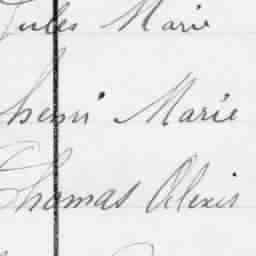 Jules Marie
henri Marie
Thomas Alexis